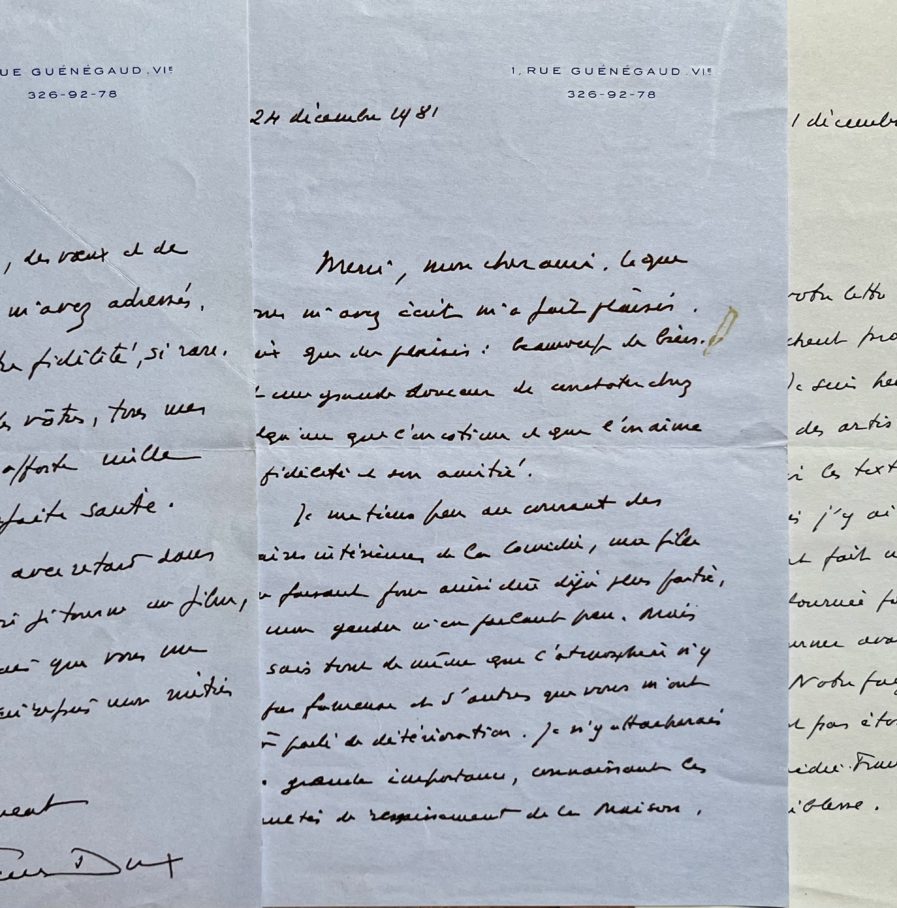 UE GUÉNÉGAUD. VIᵉ
326-92-78
, des vœux et de
m'avez adressés.
fidélité, si rare.
vôtres, tous mes
apporte mille
faite santé.
avec retard dans
si je tourne un film,
que vous me
repris mon métier
Dux
1, RUE GUÉNÉGAUD. VIᵉ
326-92-78
24 décembre 1981
Merci, mon cher ami. Ce que
m'avez écrit m'a fait plaisir.
que du plaisir : beaucoup de bien.
une grande douceur de constater chez
qu'un que l'on estime et que l'on aime
fidélité et son amitié.
Je me tiens peu au courant des
intérieures de la Comédie, ma fille
faisant pour ainsi dire déjà plus partie,
mon gendre m'en parlant peu. Mais
sais tout de même que l'atmosphère n'y
pas fameuse et d'autres que vous m'ont
parlé de détérioration. Je n'y attacherais
grande importance, connaissant les
de la Maison.
1 décemb
votre lettre
Je suis heu
des artis
les text
j'y ai
fait
tournée
ava
Notre
pas éto
Fran